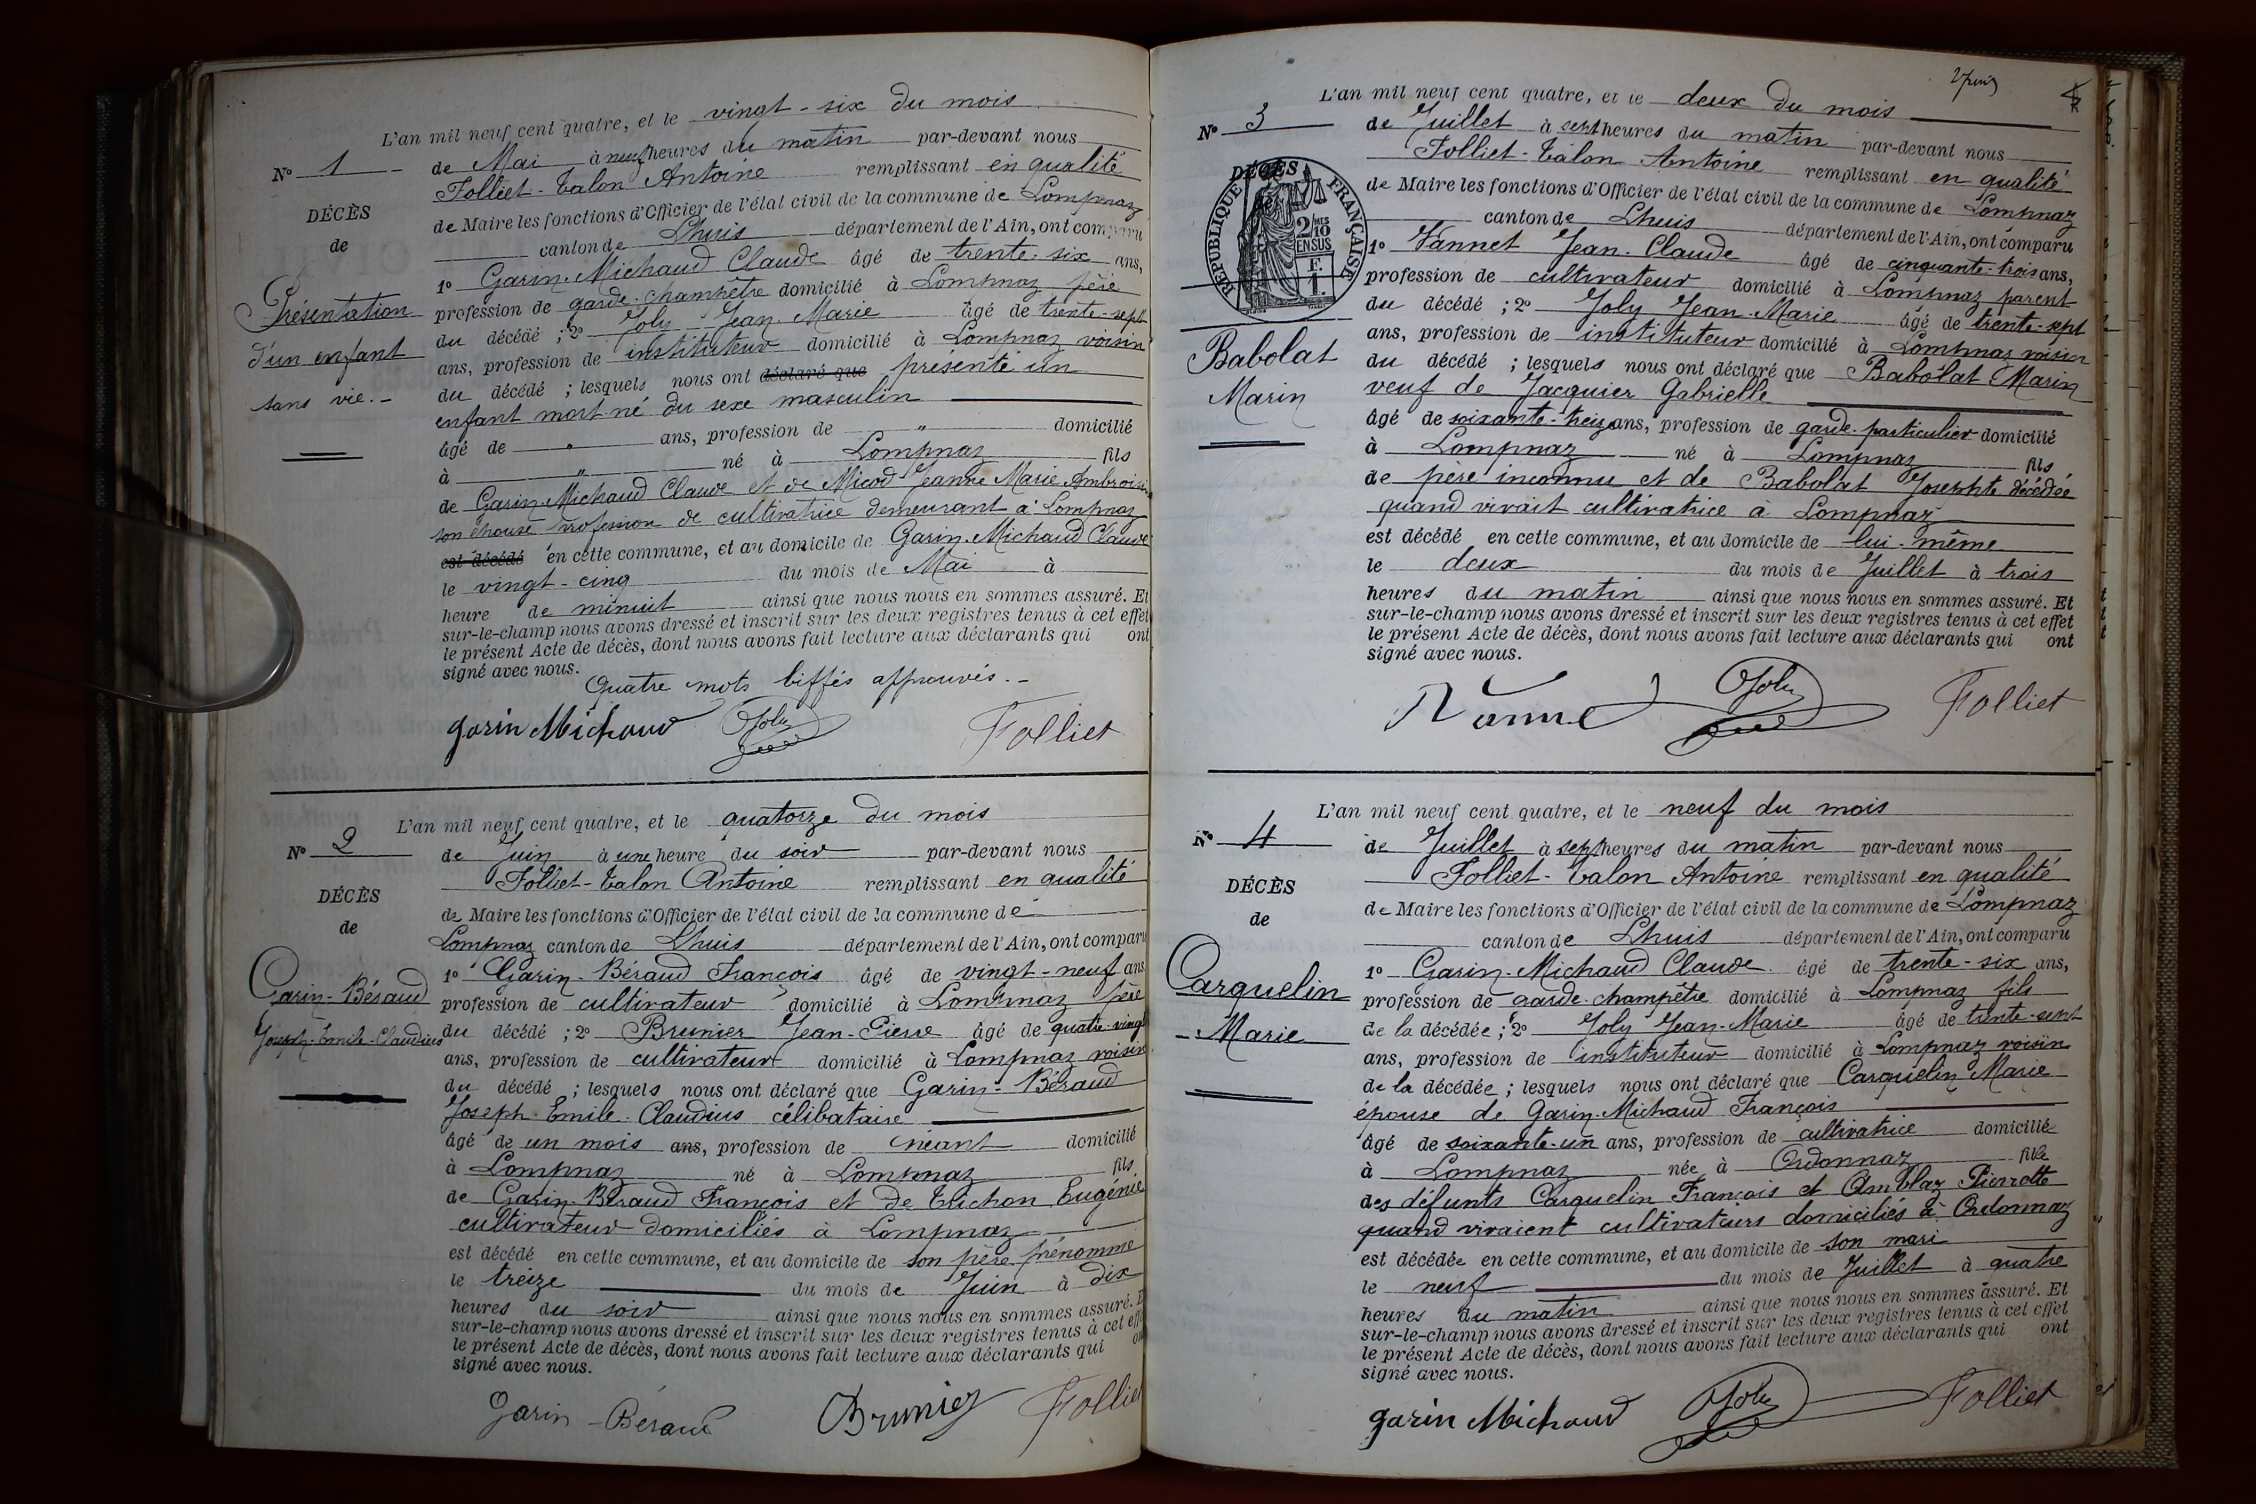 L'an mil neuf cent quatre, et le vingt-six du mois
N° 1
de Mai à neuf heures du matin par-devant nous
Folliet-Talon Antoine remplissant en qualité
DÉCÈS
de Maire les fonctions d'Officier de l'état civil de la commune de Lompnaz
de
canton de Lhuis département de l'Ain, ont comparu
1° Garin-Michaud Claude âgé de trente-six ans,
Présentation
profession de garde-champêtre domicilié à Lompnaz père
du décédé ; 2° Joly Jean-Marie âgé de trente-sept
d'un enfant
ans, profession de instituteur domicilié à Lompnaz voisin
sans vie.-
du décédé ; lesquels nous ont déclaré que présenté un
enfant mort-né du sexe masculin
âgé de " ans, profession de " domicilié
à " né à Lompnaz fils
de Garin-Michaud Claude et de Micod Jeanne Marie Ambroisine
son épouse profession de cultivatrice demeurant à Lompnaz
est décédé en cette commune, et au domicile de Garin-Michaud Claude
le vingt-cinq du mois de Mai à
heure de minuit ainsi que nous nous en sommes assuré. Et
sur-le-champ nous avons dressé et inscrit sur les deux registres tenus à cet effet
le présent Acte de décès, dont nous avons fait lecture aux déclarants qui ont
signé avec nous.
Quatre mots biffés approuvés.-
garin Michaud Joly Folliet
L'an mil neuf cent quatre, et le quatorze du mois
N° 2
de Juin à une heure du soir par-devant nous
Folliet-Talon Antoine remplissant en qualité
DÉCÈS
de Maire les fonctions d'Officier de l'état civil de la commune de
de
Lompnaz canton de Lhuis département de l'Ain, ont comparu
1° Garin-Béraud François âgé de vingt-neuf ans
Garin-Béraud
profession de cultivateur domicilié à Lompnaz père
Joseph-Emile-Claudius
du décédé ; 2° Brunier Jean-Pierre âgé de quatre-vingt
ans, profession de cultivateur domicilié à Lompnaz voisin
du décédé ; lesquels nous ont déclaré que Garin-Béraud
Joseph-Emile-Claudius célibataire
âgé de un mois ans, profession de néant domicilié
à Lompnaz né à Lompnaz fils
de Garin-Béraud François et de Trichon Eugénie
cultivateur domiciliés à Lompnaz
est décédé en cette commune, et au domicile de son père prénommé
le treize du mois de Juin à dix
heures du soir ainsi que nous nous en sommes assuré. E
sur-le-champ nous avons dressé et inscrit sur les deux registres tenus à cet effe
le présent Acte de décès, dont nous avons fait lecture aux déclarants qui on
signé avec nous.
Garin-Béraud Brunier Folliet
4
L'an mil neuf cent quatre, et le deux du mois
N° 3
de Juillet à sept heures du matin par-devant nous
Folliet-Talon Antoine remplissant en qualité
DÉCÈS
de Maire les fonctions d'Officier de l'état civil de la commune de Lompnaz
canton de Lhuis département de l'Ain, ont comparu
RÉPUBLIQUE FRANÇAISE
2/10 EN SUS
1° Vannet Jean-Claude âgé de cinquante-trois ans,
profession de cultivateur domicilié à Lompnaz parent
du décédé ; 2° Joly Jean-Marie âgé de trente-sept
ans, profession de instituteur domicilié à Lompnaz voisin
Babolat
du décédé ; lesquels nous ont déclaré que Babolat Marin
Marin
veuf de Jacquier Gabrielle
âgé de soixante-treize ans, profession de garde-particulier domicilié
à Lompnaz né à Lompnaz fils
de père inconnu et de Babolat Josephte décédée
quand vivait cultivatrice à Lompnaz
est décédé en cette commune, et au domicile de lui-même
le deux du mois de Juillet à trois
heures du matin ainsi que nous nous en sommes assuré. Et
sur-le-champ nous avons dressé et inscrit sur les deux registres tenus à cet effet
le présent Acte de décès, dont nous avons fait lecture aux déclarants qui ont
signé avec nous.
Joly Folliet
L'an mil neuf cent quatre, et le neuf du mois
N° 4
de Juillet à sept heures du matin par-devant nous
Folliet-Talon Antoine remplissant en qualité
DÉCÈS
de Maire les fonctions d'Officier de l'état civil de la commune de Lompnaz
de
canton de Lhuis département de l'Ain, ont comparu
1° Garin-Michaud Claude âgé de trente-six ans,
Carquelin
profession de garde-champêtre domicilié à Lompnaz fils
Marie
de la décédée ; 2° Joly Jean-Marie âgé de trente-sept
ans, profession de instituteur domicilié à Lompnaz voisin
de la décédée ; lesquels nous ont déclaré que Carquelin Marie
épouse de Garin-Michaud François
âgé de soixante-un ans, profession de cultivatrice domiciliée
à Lompnaz née à Ordonnaz fille
des défunts Carquelin François et Amblaz Pierrette
quand vivaient cultivateurs domiciliés à Ordonnaz
est décédée en cette commune, et au domicile de son mari
le neuf du mois de Juillet à quatre
heures du matin ainsi que nous nous en sommes assuré. Et
sur-le-champ nous avons dressé et inscrit sur les deux registres tenus à cet effet
le présent Acte de décès, dont nous avons fait lecture aux déclarants qui ont
signé avec nous.
garin Michaud Joly Folliet